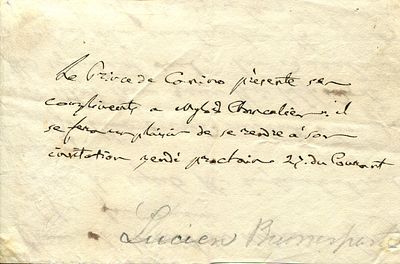 Le Prince de Canino présente ses
compliments a Mylord Chancelier; il
se fera un plaisir de se rendre à son
invitation vendì prochain 27. du Courant
Lucien Buonaparte